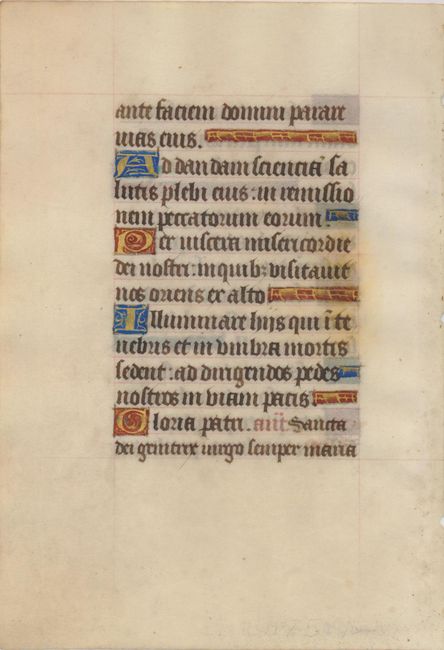 ante faciem domini parare
uias eius.
Ad dandam scienciā sa
lutis plebi eius: in remissio
nem peccatorum eorum.
Per uiscera misericordie
dei nostri: in quib; visitauit
nos oriens ex alto
Illuminare hijs qui ī te
nebris et in vmbra mortis
sedent: ad dirigendos pedes
nostros in viam pacis.
Gloria patri. añ Sancta
dei genitrix uirgo semper maria